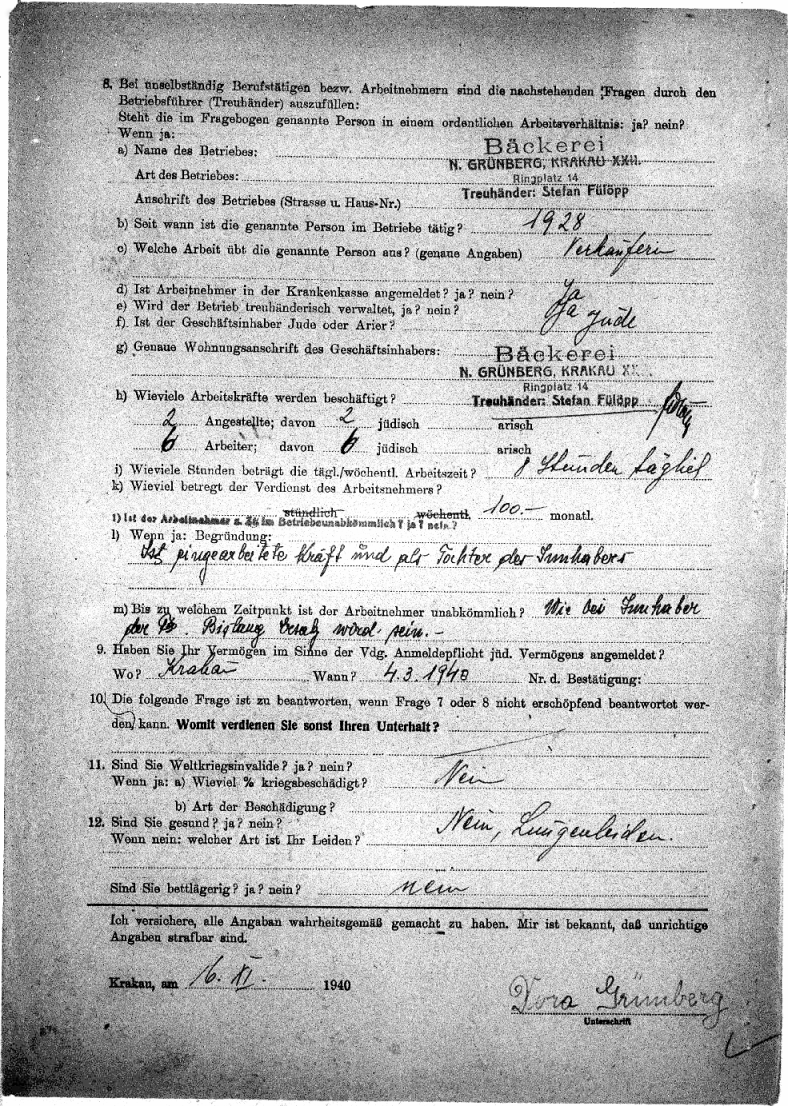 8. Bei unselbständig Berufstätigen bezw. Arbeitnehmern sind die nachstehenden Fragen durch den
Betriebsführer (Treuhänder) auszufüllen:
Steht die im Fragebogen genannte Person in einem ordentlichen Arbeitsverhältnis: ja? nein?
Wenn ja:
a) Name des Betriebes: Bäckerei
N. GRÜNBERG, KRAKAU XXII.
Art des Betriebes: Ringplatz 14
Anschrift des Betriebes (Strasse u. Haus-Nr.) Treuhänder: Stefan Fülöpp
b) Seit wann ist die genannte Person im Betriebe tätig? 1928
c) Welche Arbeit übt die genannte Person aus? (genaue Angaben) Verkäuferin
d) Ist Arbeitnehmer in der Krankenkasse angemeldet? ja? nein? Ja
e) Wird der Betrieb treuhänderisch verwaltet, ja? nein? Ja
f) Ist der Geschäftsinhaber Jude oder Arier? Jude
g) Genaue Wohnungsanschrift des Geschäftsinhabers: Bäckerei
N. GRÜNBERG, KRAKAU
Ringplatz 14
h) Wieviele Arbeitskräfte werden beschäftigt? Treuhänder: Stefan Fülöpp
2 Angestellte; davon 2 jüdisch arisch
6 Arbeiter; davon 6 jüdisch arisch
i) Wieviele Stunden beträgt die tägl./wöchentl. Arbeitszeit? 8 Stunden täglich
k) Wieviel betregt der Verdienst des Arbeitsnehmers?
stündlich wöchentl. 100.— monatl.
l) Ist der Arbeitnehmer z. Zt im Betriebe unabkömmlich? ja? nein?
l) Wenn ja: Begründung:
Ist eingearbeitete Kraft und als Tochter des Innhabers
m) Bis zu welchem Zeitpunkt ist der Arbeitnehmer unabkömmlich? Wie bei Innhaber
Bislang Ersatz wird sein.-
9. Haben Sie Ihr Vermögen im Sinne der Vdg. Anmeldepflicht jüd. Vermögens angemeldet?
Wo? Krakau Wann? 4.3.1940 Nr. d. Bestätigung:
10. Die folgende Frage ist zu beantworten, wenn Frage 7 oder 8 nicht erschöpfend beantwortet wer-
den kann. Womit verdienen Sie sonst Ihren Unterhalt?
11. Sind Sie Weltkriegsinvalide? ja? nein?
Wenn ja: a) Wieviel % kriegsbeschädigt? Nein
b) Art der Beschädigung?
12. Sind Sie gesund? ja? nein?
Wenn nein: welcher Art ist Ihr Leiden? Nein, Lungenleiden.
Sind Sie bettlägerig? ja? nein? nein
Ich versichere, alle Angaban wahrheitsgemäß gemacht zu haben. Mir ist bekannt, daß unrichtige
Angaben strafbar sind.
Krakau, am 16. XI. 1940
Dora Grünberg
Unterschrift